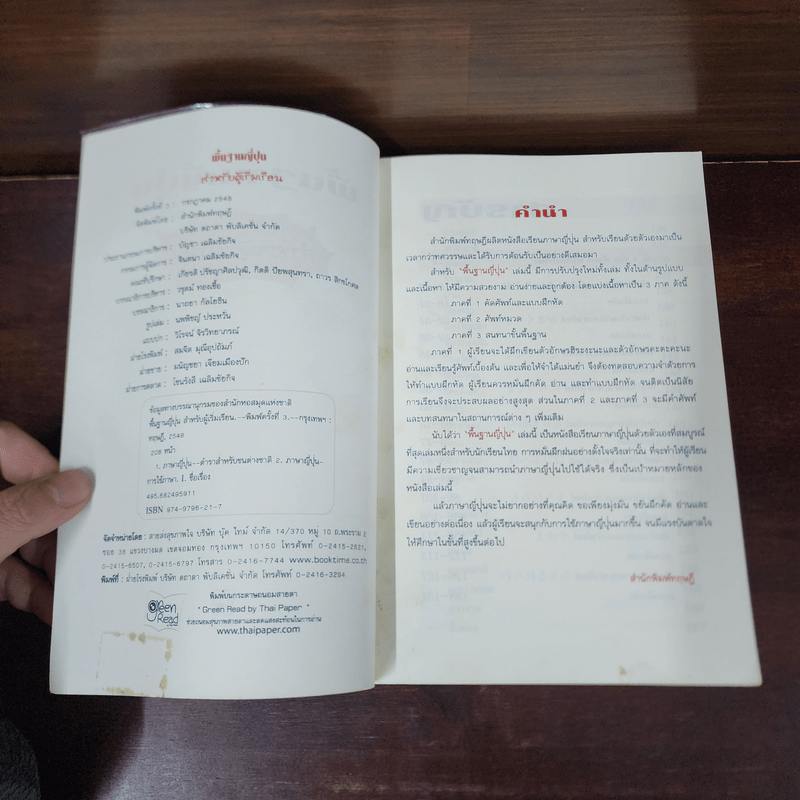 พื้นฐานญี่ปุ่น
สำหรับผู้เริ่มเรียน
พิมพ์ครั้งที่ 3 : กรกฎาคม 2548
จัดพิมพ์โดย : สำนักพิมพ์ทฤษฎี
บริษัท ตถาตา พับลิเคชั่น จำกัด
ประธานกรรมการบริหาร : บัญชา เฉลิมชัยกิจ
กรรมการผู้จัดการ : จินตนา เฉลิมชัยกิจ
คณะที่ปรึกษา : เกียรติ ปรัชญาศิลปวุฒิ, กิตติ ปิยพสุนทรา, ถาวร สิกขโกศล
บรรณาธิการบริหาร : วรุตม์ ทองเชื้อ
บรรณาธิการ : นาถยา กัลโยธิน
รูปเล่ม : นพพิชญ์ ประหวั่น
แบบปก : วิโรจน์ จิรวิทยาภรณ์
ฝ่ายโรงพิมพ์ : สมจิต มุณีอุปถัมภ์
ฝ่ายขาย : มนัญชยา เจียมเมืองปัก
ฝ่ายการตลาด : โชนรังสี เฉลิมชัยกิจ
ข้อมูลทางบรรณานุกรมของสำนักหอสมุดแห่งชาติ
พื้นฐานญี่ปุ่น สำหรับผู้เริ่มเรียน.--พิมพ์ครั้งที่ 3.--กรุงเทพฯ :
ทฤษฎี, 2548
208 หน้า
1. ภาษาญี่ปุ่น--ตำราสำหรับชนต่างชาติ 2. ภาษาญี่ปุ่น-
การใช้ภาษา. I. ชื่อเรื่อง
495.682495911
ISBN 974-9798-21-7
จัดจำหน่ายโดย : สายส่งสุขภาพใจ บริษัท บุ๊ค ไทม์ จำกัด 14/370 หมู่ 10 ถ.พระราม 2
ซอย 38 แขวงบางมด เขตจอมทอง กรุงเทพฯ 10150 โทรศัพท์ 0-2415-2621,
0-2415-6507, 0-2415-6797 โทรสาร 0-2416-7744 www.booktime.co.th
พิมพ์ที่ : ฝ่ายโรงพิมพ์ บริษัท ตถาตา พับลิเคชั่น จำกัด โทรศัพท์ 0-2416-3294
Green Read
พิมพ์บนกระดาษถนอมสายตา
" Green Read by Thai Paper "
ช่วยถนอมสุขภาพสายตาและลดแสงสะท้อนในการอ่าน
www.thaipaper.com
คำนำ
สำนักพิมพ์ทฤษฎีผลิตหนังสือเรียนภาษาญี่ปุ่น สำหรับเรียนด้วยตัวเองมาเป็น
เวลากว่าทศวรรษและได้รับการต้อนรับเป็นอย่างดีเสมอมา
สำหรับ "พื้นฐานญี่ปุ่น" เล่มนี้ มีการปรับปรุงใหม่ทั้งเล่ม ทั้งในด้านรูปแบบ
และเนื้อหา ให้มีความสวยงาม อ่านง่ายและถูกต้อง โดยแบ่งเนื้อหาเป็น 3 ภาค ดังนี้
ภาคที่ 1 คัดศัพท์และแบบฝึกหัด
ภาคที่ 2 ศัพท์หมวด
ภาคที่ 3 สนทนาขั้นพื้นฐาน
ภาคที่ 1 ผู้เรียนจะได้ฝึกเขียนตัวอักษรฮิระงะนะและตัวอักษรคะตะคะนะ
อ่านและเรียนรู้ศัพท์เบื้องต้น และเพื่อให้จำได้แม่นยำ จึงต้องทดสอบความจำด้วยการ
ให้ทำแบบฝึกหัด ผู้เรียนควรหมั่นฝึกคัด อ่าน และทำแบบฝึกหัด จนติดเป็นนิสัย
การเรียนจึงจะประสบผลอย่างสูงสุด ส่วนในภาคที่ 2 และภาคที่ 3 จะมีคำศัพท์
และบทสนทนาในสถานการณ์ต่าง ๆ เพิ่มเติม
นับได้ว่า "พื้นฐานญี่ปุ่น" เล่มนี้ เป็นหนังสือเรียนภาษาญี่ปุ่นด้วยตัวเองที่สมบูรณ์
ที่สุดเล่มหนึ่งสำหรับนักเรียนไทย การหมั่นฝึกฝนอย่างตั้งใจจริงเท่านั้น ที่จะทำให้ผู้เรียน
มีความเชี่ยวชาญจนสามารถนำภาษาญี่ปุ่นไปใช้ได้จริง ซึ่งเป็นเป้าหมายหลักของ
หนังสือเล่มนี้
แล้วภาษาญี่ปุ่นจะไม่ยากอย่างที่คุณคิด ขอเพียงมุ่งมั่น ขยันฝึกคัด อ่านและ
เขียนอย่างต่อเนื่อง แล้วผู้เรียนจะสนุกกับการใช้ภาษาญี่ปุ่นมากขึ้น จนมีแรงบันดาลใจ
ให้ศึกษาในขั้นที่สูงขึ้นต่อไป
สำนักพิมพ์ทฤษฎี